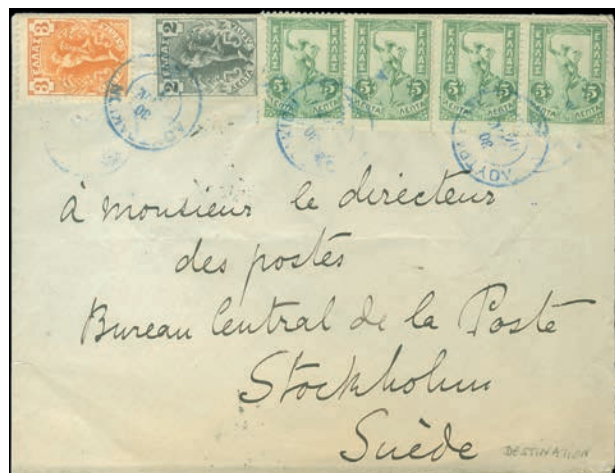 3 ΕΛΛΑΣ 3
2 ΕΛΛΑΣ 2 ΛΕΠΤΑ
ΕΛΛΑΣ 5 5 ΛΕΠΤΑ
ΕΛΛΑΣ 5 5 ΛΕΠΤΑ
ΕΛΛΑΣ 5 5 ΛΕΠΤΑ
ΕΛΛΑΣ 5 5 ΛΕΠΤΑ
30
30
30
à monsieur le directeur
des postes
Bureau Central de la Poste
Stockholm
Suède
DESTINATION